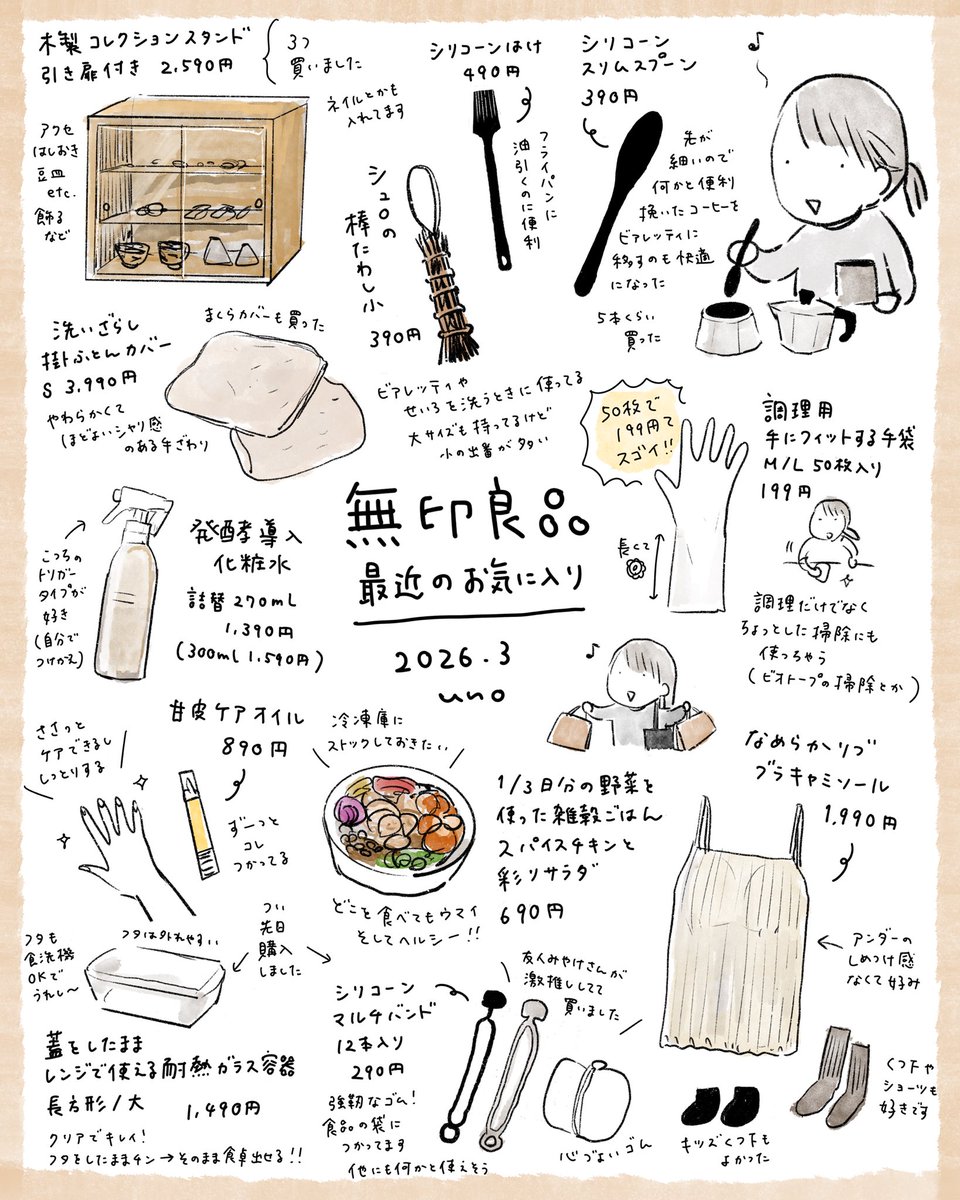 木製コレクションスタンド
引き扉付き 2,590円
3つ
買いました
ネイルとかも
入れてます
アクセ
はしおき
豆皿
etc.
飾る
など
シリコーンはけ
490円
フライパンに
油引くのに便利
シリコーン
スリムスプーン
390円
先が
細いので
何かと便利
挽いたコーヒーを
ビアレッティに
移すのも快適
になった
5本くらい
買った
♪
シュロの
棒たわし小
390円
ビアレッティや
せいろを洗うときに使ってる
大サイズも持ってるけど
小の出番が多い
洗いざらし
掛ふとんカバー
S 3,990円
まくらカバーも買った
やわらかくて
ほどよいシャリ感
のある手ざわり
50枚で
199円て
スゴイ!!
調理用
手にフィットする手袋
M/L 50枚入り
199円
長くて
調理だけでなく
ちょっとした掃除にも
使っちゃう
(ビオトープの掃除とか)
無印良品
最近のお気に入り
2026.3
uno
♪
発酵導入
化粧水
詰替270mL
1,390円
(300mL 1,590円)
こっちの
トリガー
タイプが
好き
(自分で
つけかえ)
甘皮ケアオイル
890円
ささっと
ケアできるし
しっとりする
ずーっと
コレ
つかってる
冷凍庫に
ストックしておきたい
1/3日分の野菜を
使った雑穀ごはん
スパイスチキンと
彩りサラダ
690円
どこを食べてもウマイ
そしてヘルシー!!
なめらかリブ
ブラキャミソール
1,990円
アンダーの
しめつけ感
なくて好み
つい
先日
購入
しました
フタも
食洗機
OKで
うれし〜
フタは外れやすい
蓋をしたまま
レンジで使える耐熱ガラス容器
長方形/大 1,490円
クリアでキレイ!
フタをしたままチン→そのまま食卓出せる!!
シリコーン
マルチバンド
12本入り
290円
強靭なゴム!
食品の袋に
つかってます
他にも何かと使えそう
友人みやけさんが
激推ししてて
買いました
心づよいゴム
キッズくつ下も
よかった
くつ下や
ショーツも
好きです